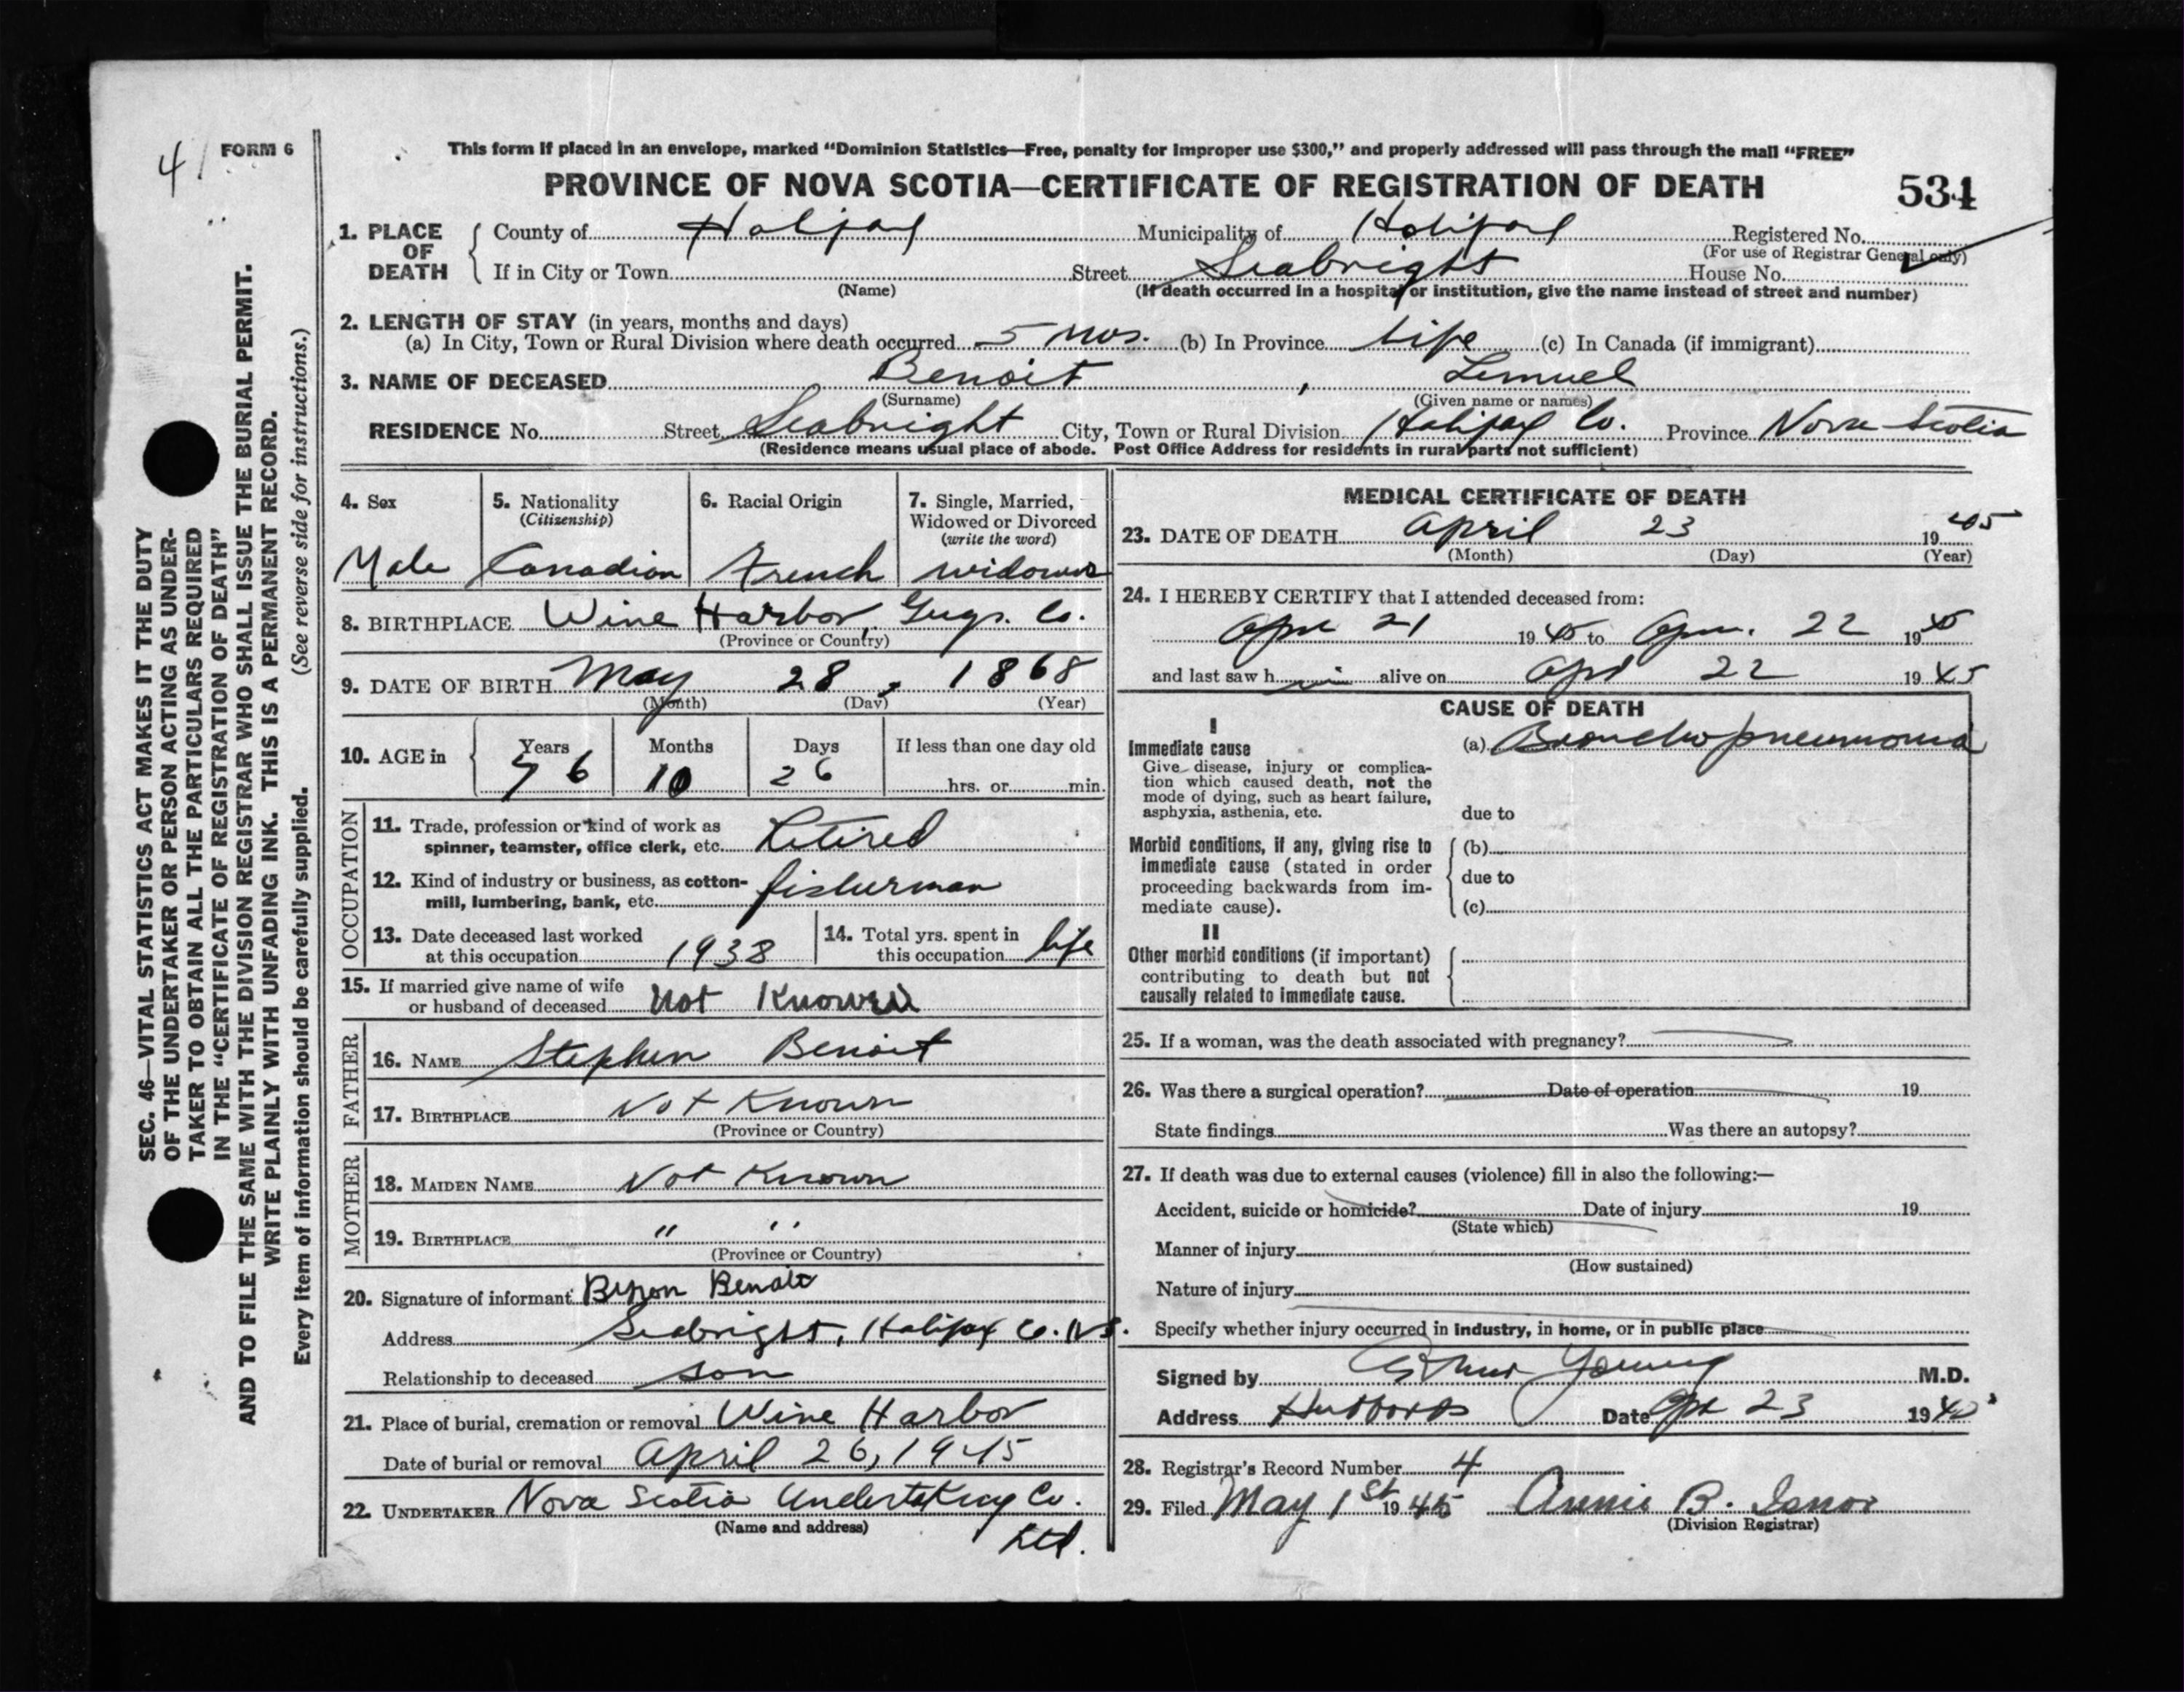 41
FORM 6
This form if placed in an envelope, marked “Dominion Statistics—Free, penalty for improper use $300,” and properly addressed will pass through the mail “FREE”
PROVINCE OF NOVA SCOTIA—CERTIFICATE OF REGISTRATION OF DEATH
534
1. PLACE OF DEATH County of Halifax Municipality of Halifax Registered No.
(For use of Registrar General only)
If in City or Town Street Seabright House No.
(Name) (If death occurred in a hospital or institution, give the name instead of street and number)
2. LENGTH OF STAY (in years, months and days)
(a) In City, Town or Rural Division where death occurred 5 mos. (b) In Province Life (c) In Canada (if immigrant)
3. NAME OF DECEASED Benoit, Lemuel
(Surname) (Given name or names)
RESIDENCE No. Street Seabright City, Town or Rural Division Halifax Co. Province Nova Scotia
(Residence means usual place of abode. Post Office Address for residents in rural parts not sufficient)
4. Sex 5. Nationality (Citizenship) 6. Racial Origin 7. Single, Married, Widowed or Divorced (write the word)
Male Canadian French
8. BIRTHPLACE Wine Harbor, Guys. Co.
(Province or Country)
9. DATE OF BIRTH May 28, 1868
(Month) (Day) (Year)
10. AGE in Years Months Days If less than one day old
76 10 26 hrs. or min.
OCCUPATION
11. Trade, profession or kind of work as spinner, teamster, office clerk, etc. Retired
12. Kind of industry or business, as cotton-mill, lumbering, bank, etc. fisherman
13. Date deceased last worked at this occupation 1938 14. Total yrs. spent in this occupation life
15. If married give name of wife or husband of deceased Not Known
FATHER
16. NAME Stephen Benoit
17. BIRTHPLACE Not Known
(Province or Country)
MOTHER
18. MAIDEN NAME Not Known
19. BIRTHPLACE " "
(Province or Country)
20. Signature of informant Byron Benoit
Address Seabright, Halifax Co. N.S.
Relationship to deceased son
21. Place of burial, cremation or removal Wine Harbor
Date of burial or removal April 26, 1945
22. UNDERTAKER Nova Scotia Undertaking Co.
(Name and address) Ltd.
MEDICAL CERTIFICATE OF DEATH
23. DATE OF DEATH April 23 1945
(Month) (Day) (Year)
24. I HEREBY CERTIFY that I attended deceased from:
21 1945 to 22 1945
and last saw him alive on 22 1945
CAUSE OF DEATH
I
Immediate cause (a) Bronchopneumonia
Give disease, injury or complication which caused death, not the mode of dying, such as heart failure, asphyxia, asthenia, etc.
due to
Morbid conditions, if any, giving rise to immediate cause (stated in order proceeding backwards from immediate cause).
(b)
due to
(c)
II
Other morbid conditions (if important) contributing to death but not causally related to immediate cause.
25. If a woman, was the death associated with pregnancy?
26. Was there a surgical operation? Date of operation 19
State findings Was there an autopsy?
27. If death was due to external causes (violence) fill in also the following:—
Accident, suicide or homicide? Date of injury 19
(State which)
Manner of injury
(How sustained)
Nature of injury
Specify whether injury occurred in industry, in home, or in public place
Signed by Young M.D.
Address Hubbards Date 23 1945
28. Registrar's Record Number 4
29. Filed May 1st 1945 Annie B. Isnor
(Division Registrar)
SEC. 46—VITAL STATISTICS ACT MAKES IT THE DUTY
OF THE UNDERTAKER OR PERSON ACTING AS UNDER-
TAKER TO OBTAIN ALL THE PARTICULARS REQUIRED
IN THE “CERTIFICATE OF REGISTRATION OF DEATH”
AND TO FILE THE SAME WITH THE DIVISION REGISTRAR WHO SHALL ISSUE THE BURIAL PERMIT.
WRITE PLAINLY WITH UNFADING INK. THIS IS A PERMANENT RECORD.
Every item of information should be carefully supplied. (See reverse side for instructions.)